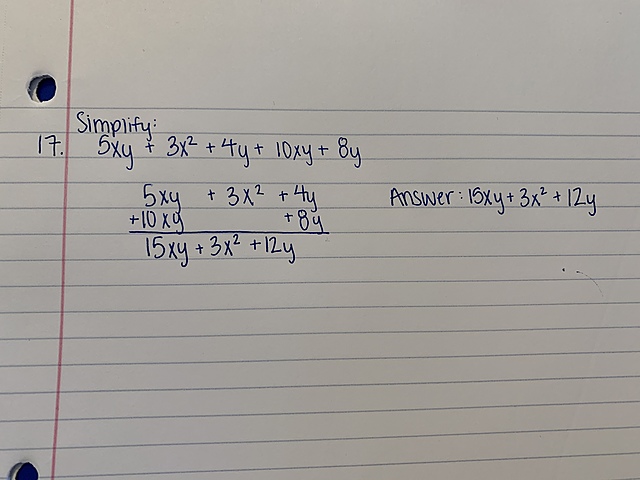 Simplify:
17. 5xy + 3x² + 4y + 10xy + 8y
5xy + 3x² + 4y
+10xy +8y
15xy + 3x² + 12y
Answer: 15xy + 3x² + 12y